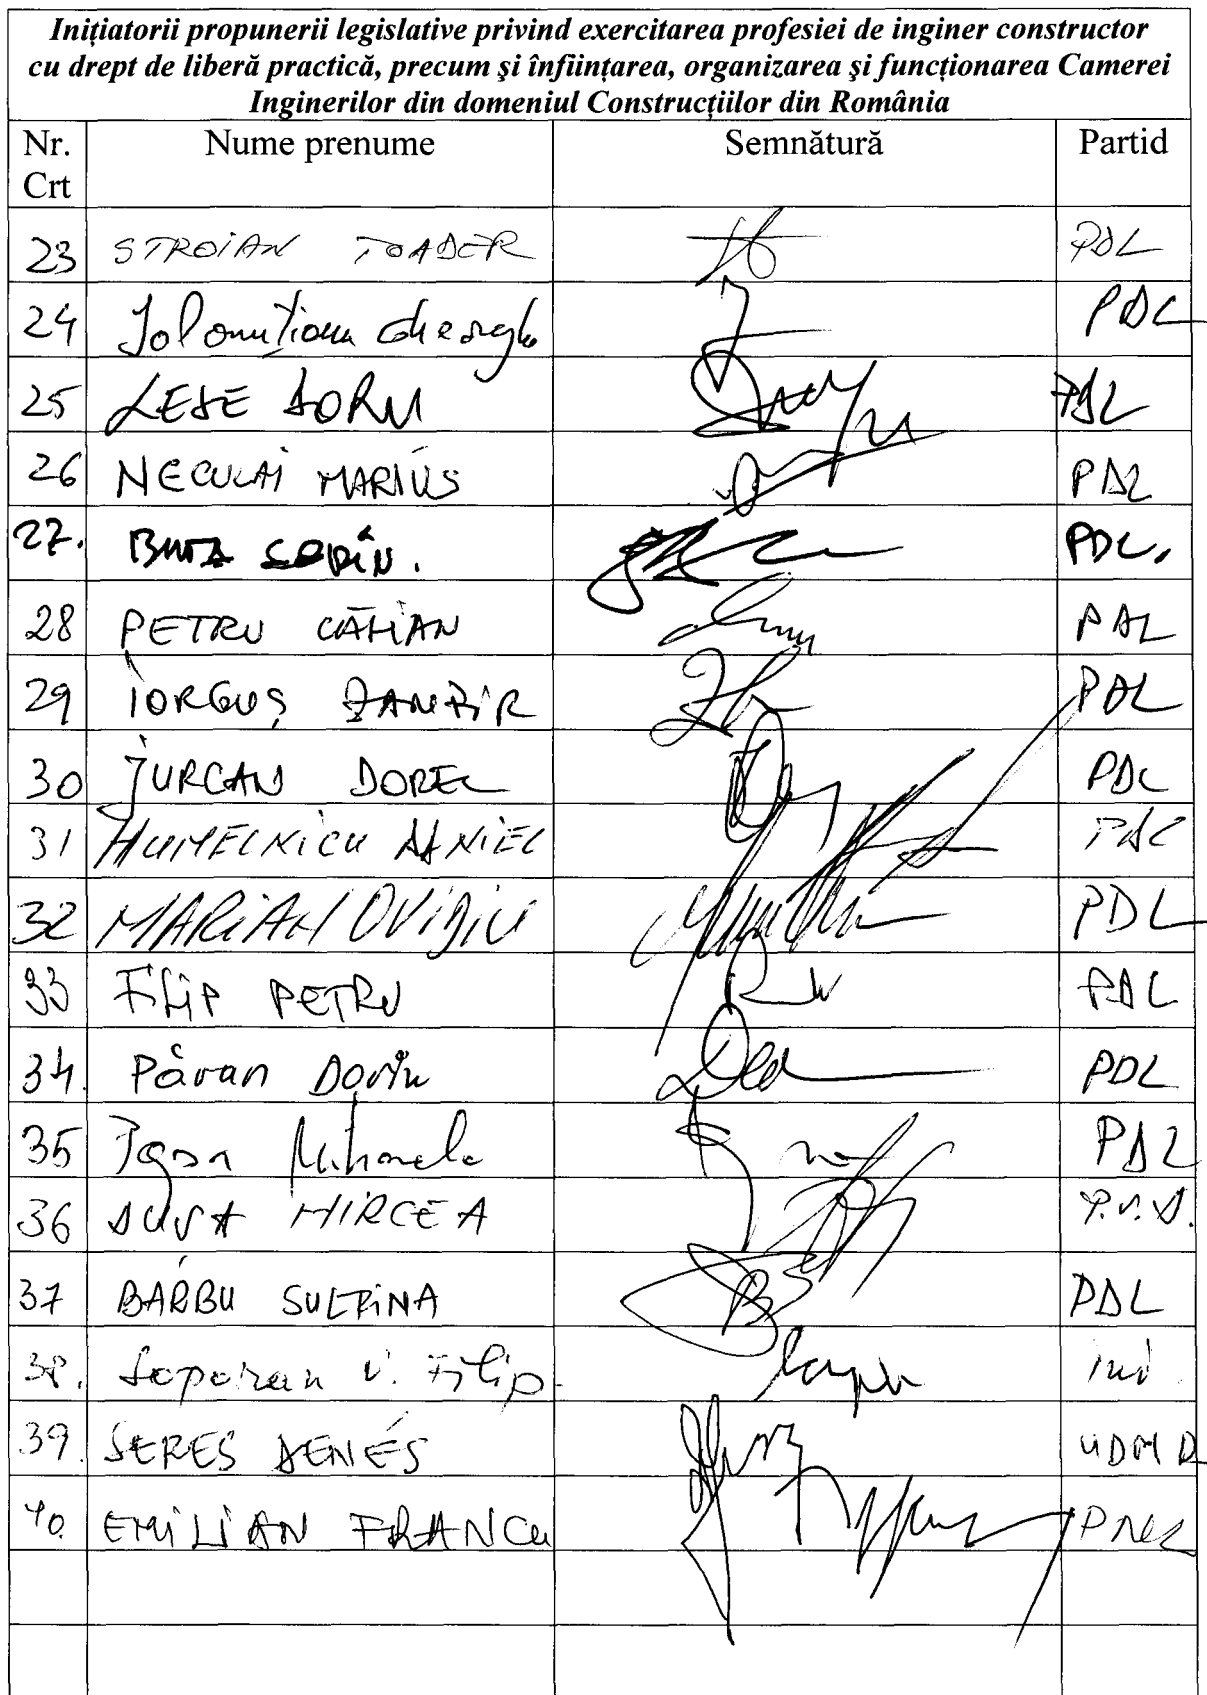 Inițiatorii propunerii legislative privind exercitarea profesiei de inginer constructor
cu drept de liberă practică, precum și înființarea, organizarea și funcționarea Camerei
Inginerilor din domeniul Construcțiilor din România
Nr. Crt Nume prenume Semnătură Partid
23 STROIAN TOADER PDL
24 Ialomițianu Gheorghe PDL
25 LESE DORU PDL
26 NECULAI MARIUS PDL
27. BUTA SORIN. PDL.
28 PETRU CĂLIAN PDL
29 IORGUȘ ZANFIR PDL
30 JURCAN DOREL PDL
31 HUMELNICU DANIEL PDL
32 MARIAN OVIDIU PDL
33 FILIP PETRU PDL
34. Păran Dorin PDL
35 PDL
36 DUȘA MIRCEA
37 BARBU SULFINA PDL
38. V. Filip ind
39. SERES DENÉS UDMR
40. EMILIAN FRANCU PNL